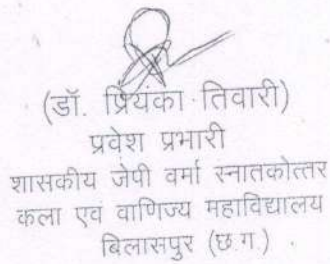 (डॉ. प्रियंका तिवारी)
प्रवेश प्रभारी
शासकीय जेपी वर्मा स्नातकोत्तर
कला एवं वाणिज्य महाविद्यालय
बिलासपुर (छ.ग.)